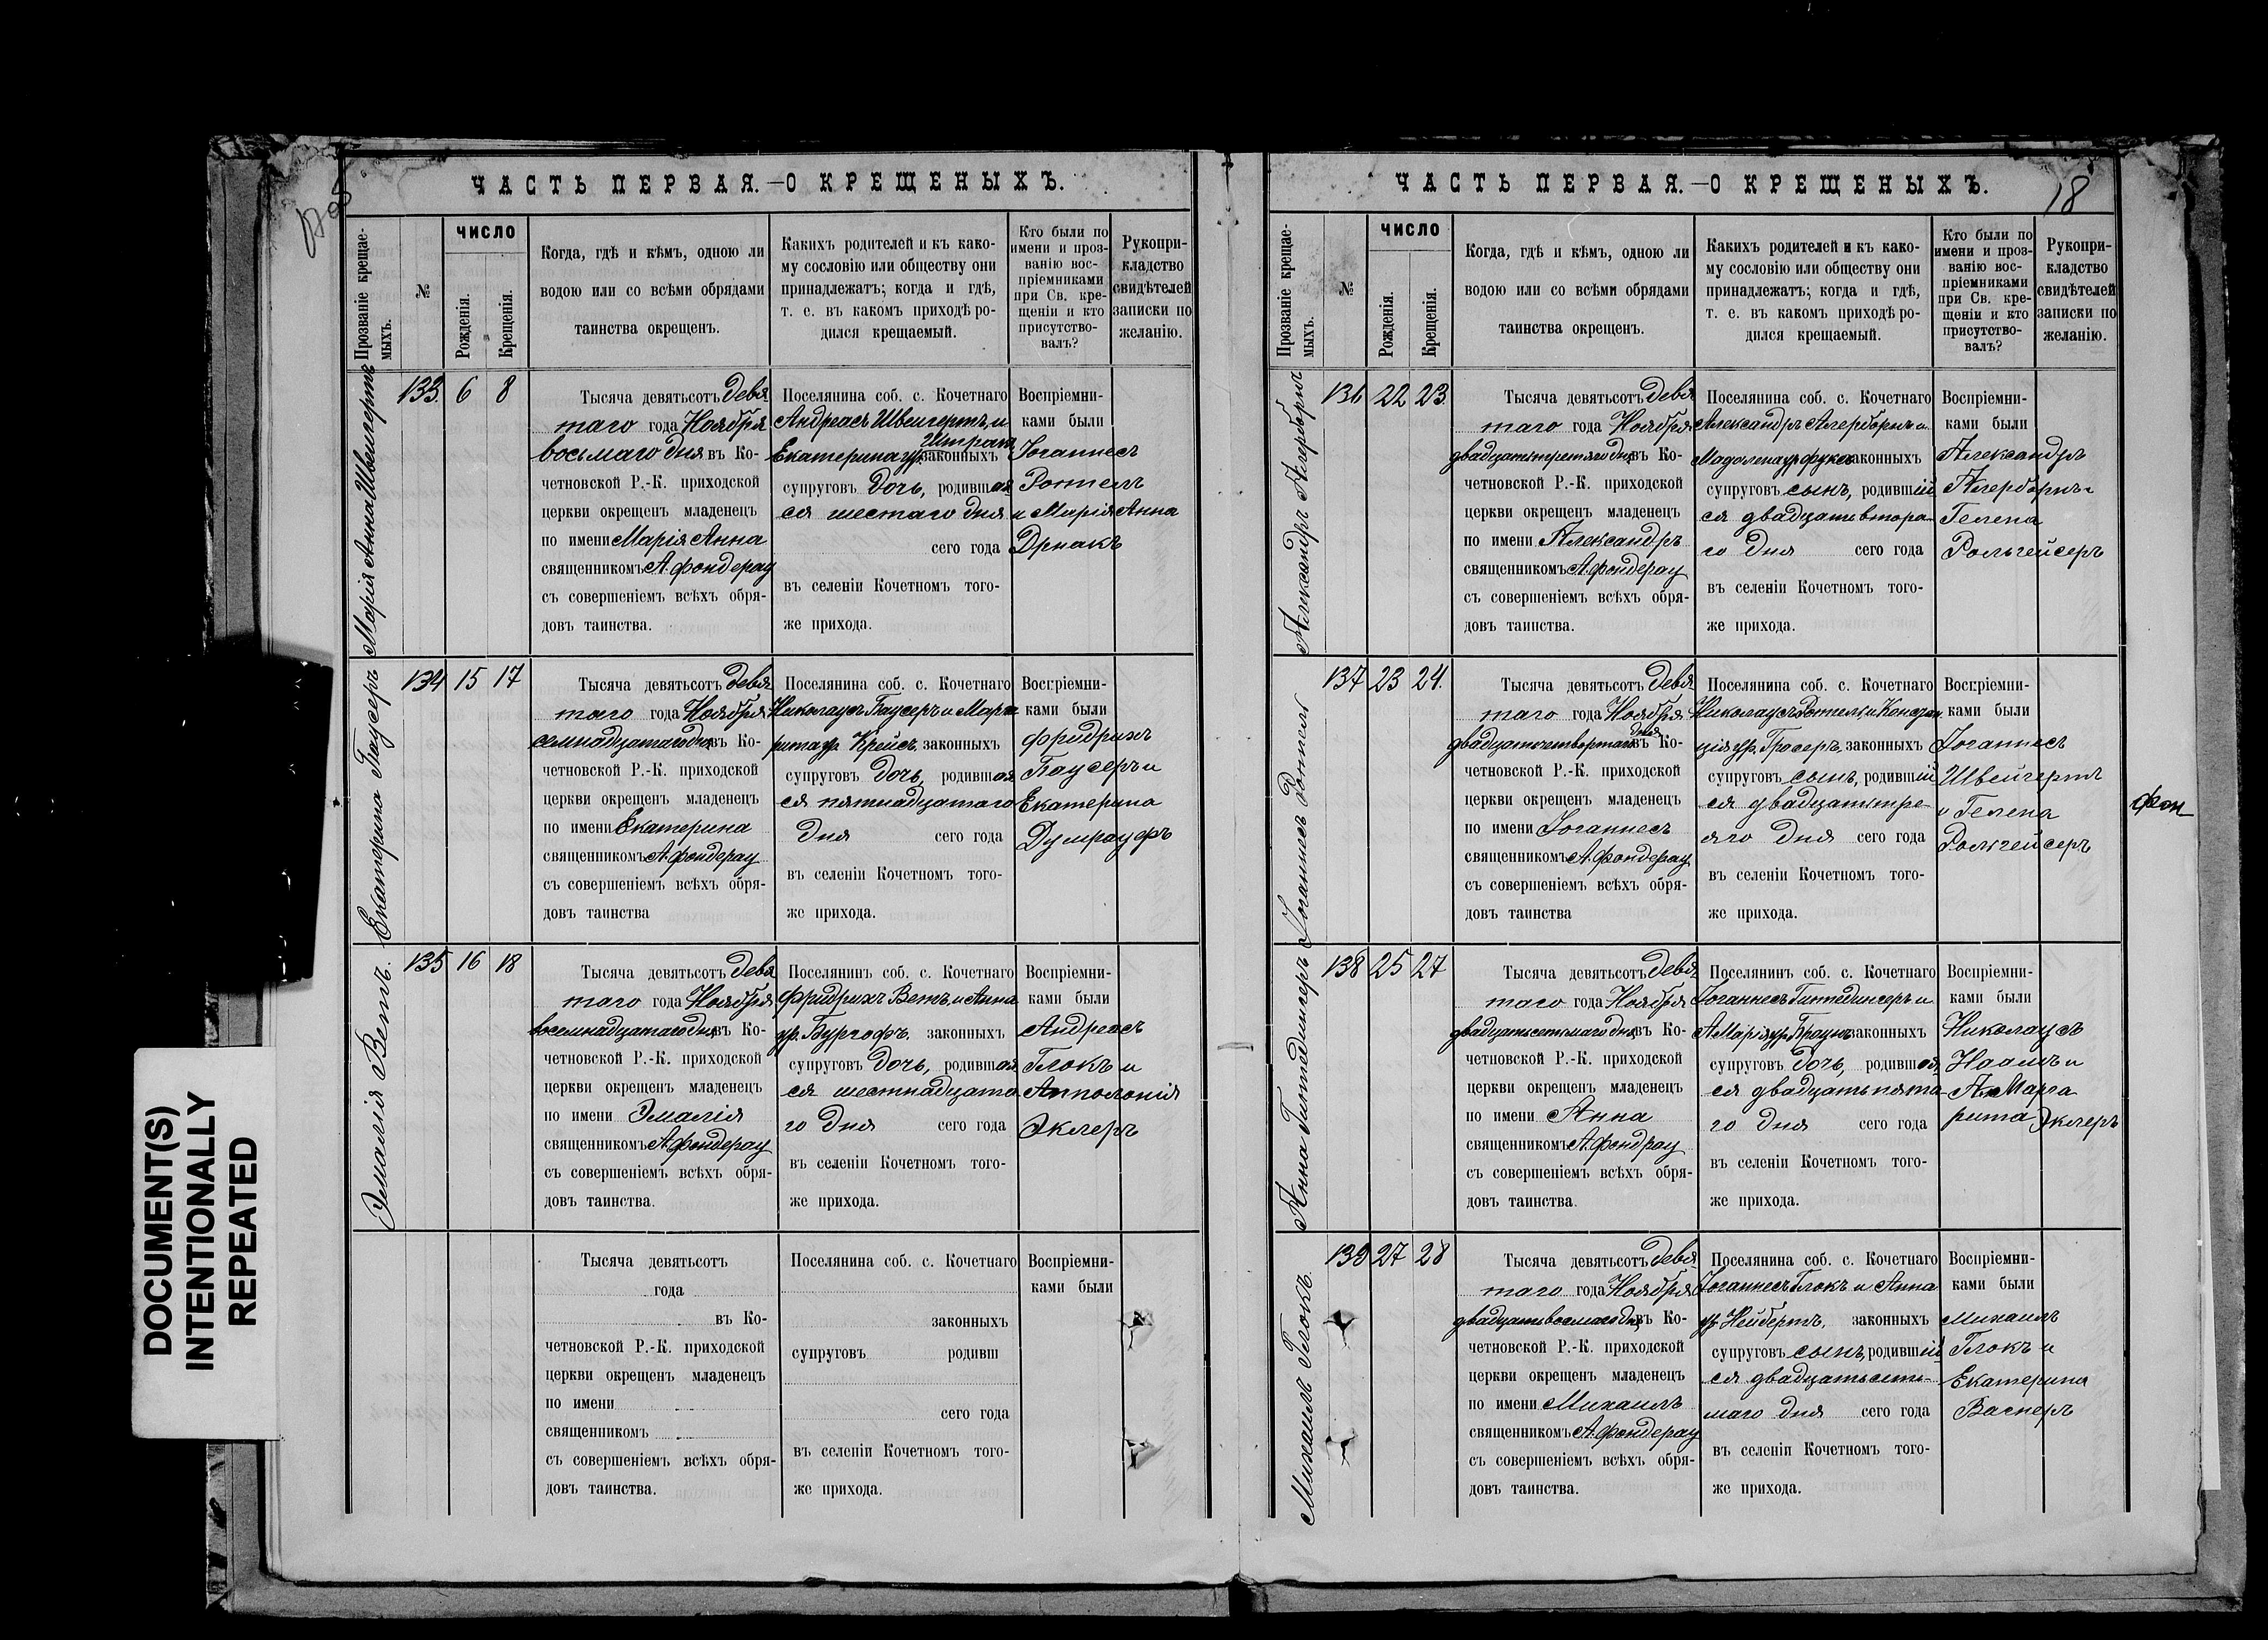 ЧАСТЬ ПЕРВАЯ.—О КРЕЩЕНЫХЪ.
Прозваніе крещаемыхъ.
№
ЧИСЛО
Рожденія.
Крещенія.
Когда, гдѣ и кѣмъ, одною ли
водою или со всѣми обрядами
таинства окрещенъ.
Какихъ родителей и къ како-
му сословію или обществу они
принадлежатъ; когда и гдѣ,
т. е. въ какомъ приходѣ ро-
дился крещаемый.
Кто были по
имени и проз-
ванію вос-
пріемниками
при Св. кре-
щеніи и кто
присутство-
валъ?
Рукопри-
кладство
свидѣтелей
записки по
желанію.
Марія Анна Швейгертъ
133. 6 8
Тысяча девятьсотъ девя
таго года Ноября
восьмаго дня въ Ко-
четновской Р.-К. приходской
церкви окрещенъ младенецъ
по имени Марія Анна
священникомъ А. фондерау
съ совершеніемъ всѣхъ обря-
довъ таинства.
Поселянина соб. с. Кочетнаго
Андреасъ Швейгертъ и
Екатерина ур. законныхъ
супруговъ дочь, родившая
ся шестаго дня
сего года
въ селеніи Кочетномъ того-
же прихода.
Воспріемни-
ками были
Іоганнесъ
Роттелъ
и Марія Анна
Дрпакъ
Екатерина Гаусеръ
134 15 17
Тысяча девятьсотъ девя
таго года Ноября
семнадцатаго дня въ Ко-
четновской Р.-К. приходской
церкви окрещенъ младенецъ
по имени Екатерина
священникомъ А. фондерау
съ совершеніемъ всѣхъ обря-
довъ таинства
Поселянина соб. с. Кочетнаго
Николаусъ Гаусеръ и Марга
рита ур. Крейсъ, законныхъ
супруговъ дочь, родившая
ся пятнадцатаго
дня сего года
въ селеніи Кочетномъ того-
же прихода.
Воспріемни-
ками были
Фридрихъ
Гаусеръ и
Екатерина
Думрауфъ
Эмалія Ветъ.
135 16 18
Тысяча девятьсотъ девя
таго года Ноября
восемнадцатаго дня въ Ко-
четновской Р.-К. приходской
церкви окрещенъ младенецъ
по имени Эмалія
священникомъ А. фондерау
съ совершеніемъ всѣхъ обря-
довъ таинства.
Поселянинъ соб. с. Кочетнаго
Фридрихъ Ветъ, и Анна
ур. Бургофъ. законныхъ
супруговъ дочь, родившая
ся шестнадцата
го дня сего года
въ селеніи Кочетномъ того-
же прихода.
Воспріемни-
ками были
Андреасъ
Глокъ и
Апполонія
Эклеръ
Тысяча девятьсотъ
года
въ Ко-
четновской Р.-К. приходской
церкви окрещенъ младенецъ
по имени
священникомъ
съ совершеніемъ всѣхъ обря-
довъ таинства.
Поселянина соб. с. Кочетнаго
законныхъ
супруговъ родивш
сего года
въ селеніи Кочетномъ того-
же прихода.
Воспріемни-
ками были
DOCUMENT(S)
INTENTIONALLY
REPEATED
ЧАСТЬ ПЕРВАЯ.—О КРЕЩЕНЫХЪ.
18
Прозваніе крещаемыхъ.
№
ЧИСЛО
Рожденія.
Крещенія.
Когда, гдѣ и кѣмъ, одною ли
водою или со всѣми обрядами
таинства окрещенъ.
Какихъ родителей и къ како-
му сословію или обществу они
принадлежатъ; когда и гдѣ,
т. е. въ какомъ приходѣ ро-
дился крещаемый.
Кто были по
имени и проз-
ванію вос-
пріемниками
при Св. кре-
щеніи и кто
присутство-
валъ?
Рукопри-
кладство
свидѣтелей
записки по
желанію.
Александръ Алерборнъ
136 22 23.
Тысяча девятьсотъ девя
таго года Ноября
двадцать третяго дня въ Ко-
четновской Р.-К. приходской
церкви окрещенъ младенецъ
по имени Александръ
священникомъ А. фондерау
съ совершеніемъ всѣхъ обря-
довъ таинства.
Поселянина соб. с. Кочетнаго
Александръ Алерборнъ и
Мадалена ур. Фуксъ законныхъ
супруговъ сынъ, родившій
ся двадцать втора
го дня сего года
въ селеніи Кочетномъ того-
же прихода.
Воспріемни-
ками были
Александръ
Алерборнъ и
Гелена
Рольгейсеръ
Іоганнесъ Роттелъ
137 23 24.
Тысяча девятьсотъ девя
таго года Ноября
двадцать четвертаго дня въ Ко-
четновской Р.-К. приходской
церкви окрещенъ младенецъ
по имени Іоганнесъ
священникомъ А. фондерау
съ совершеніемъ всѣхъ обря-
довъ таинства
Поселянина соб. с. Кочетнаго
Николаусъ Роттелъ, и Констан
ція ур. Гросеръ, законныхъ
супруговъ сынъ, родившій
ся двадцать тре-
яго дня сего года
въ селеніи Кочетномъ того-
же прихода.
Воспріемни-
ками были
Іоганнесъ
Швейгертъ
и Гелена
Рольгейсеръ
фон
Анна Гиттедингеръ
138 25 27
Тысяча девятьсотъ девя
таго года Ноября
двадцать седьмаго дня въ Ко-
четновской Р.-К. приходской
церкви окрещенъ младенецъ
по имени Анна
священникомъ А. фондрау
съ совершеніемъ всѣхъ обря-
довъ таинства.
Поселянинъ соб. с. Кочетнаго
Іоганнесъ Гиттедингеръ и
А Марія ур. Браунъ законныхъ
супруговъ дочь, родившая
ся двадцать пята
го дня сего года
въ селеніи Кочетномъ того-
же прихода.
Воспріемни-
ками были
Николаусъ
и
А. Марга
рита Эклеръ
Михаилъ Глокъ.
139 27 28
Тысяча девятьсотъ девя
таго года Ноября
двадцать восмаго дня въ Ко-
четновской Р.-К. приходской
церкви окрещенъ младенецъ
по имени Михаилъ
священникомъ А. фондерау
съ совершеніемъ всѣхъ обря-
довъ таинства.
Поселянина соб. с. Кочетнаго
Іоганнесъ Глокъ и Анна
ур. Нейбертъ, законныхъ
супруговъ сынъ, родившій
ся двадцать седь-
маго дня сего года
въ селеніи Кочетномъ того-
же прихода.
Воспріемни-
ками были
Михаилъ
Глокъ и
Екатерина
Вагнеръ